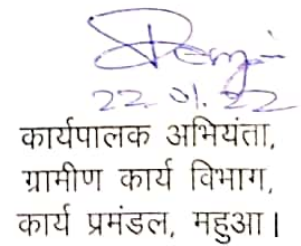 22.01.22
कार्यपालक अभियंता,
ग्रामीण कार्य विभाग,
कार्य प्रमंडल, महुआ।